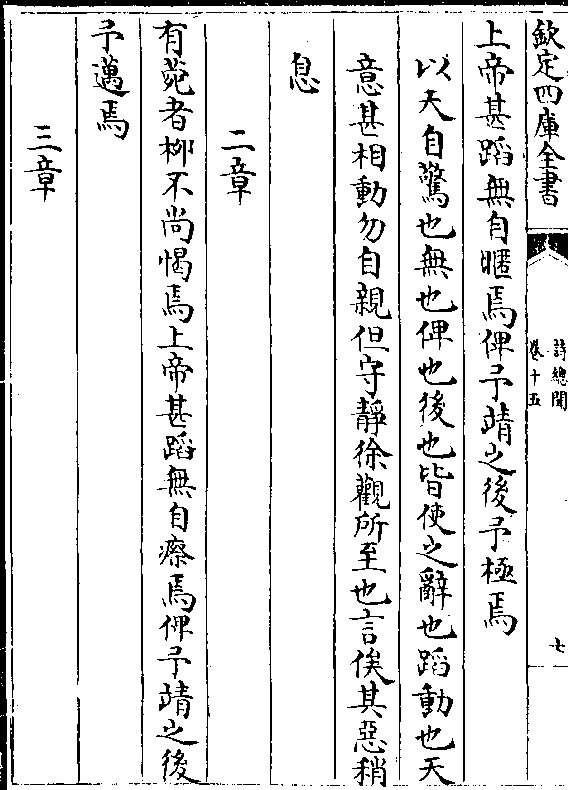 欽定四庫全書
詩總聞
卷十五
七
上帝甚蹈無自暱焉俾予靖之後予極焉
以天自驚也無也俾也後也皆使之辭也蹈動也天
意甚相動勿自親但守靜徐觀所至也言俟其惡稍
息
二章
有菀者柳不尚愒焉上帝甚蹈無自瘵焉俾予靖之後
予邁焉
三章